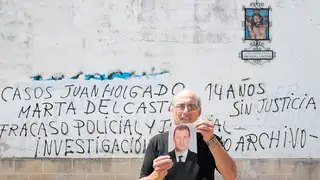 CASOS JUAN HOLGADO 14 AÑOS
MARTA DEL CAST SIN JUSTICIA
FRACASO POLICIAL Y J AL-
INVESTIGACIÓN ARCHIVO-